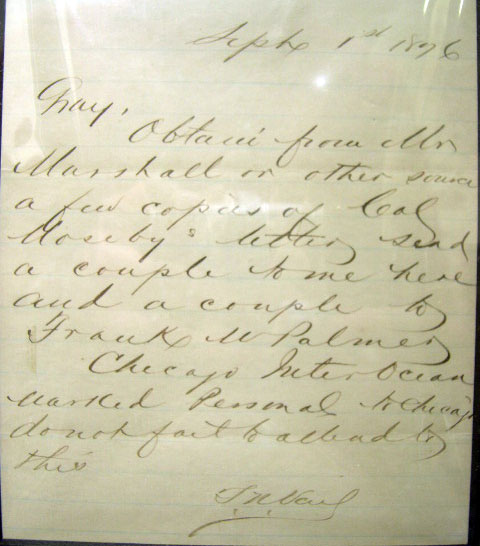 Septr 1st 1876
Gray,
Obtain from Mr
Marshall or other source
a few copies of Col
Moseby's letter, send
a couple to me here
and a couple to
Frank W Palmer
Chicago Inter Ocean
marked Personal to Chicago
do not fail to attend to
this